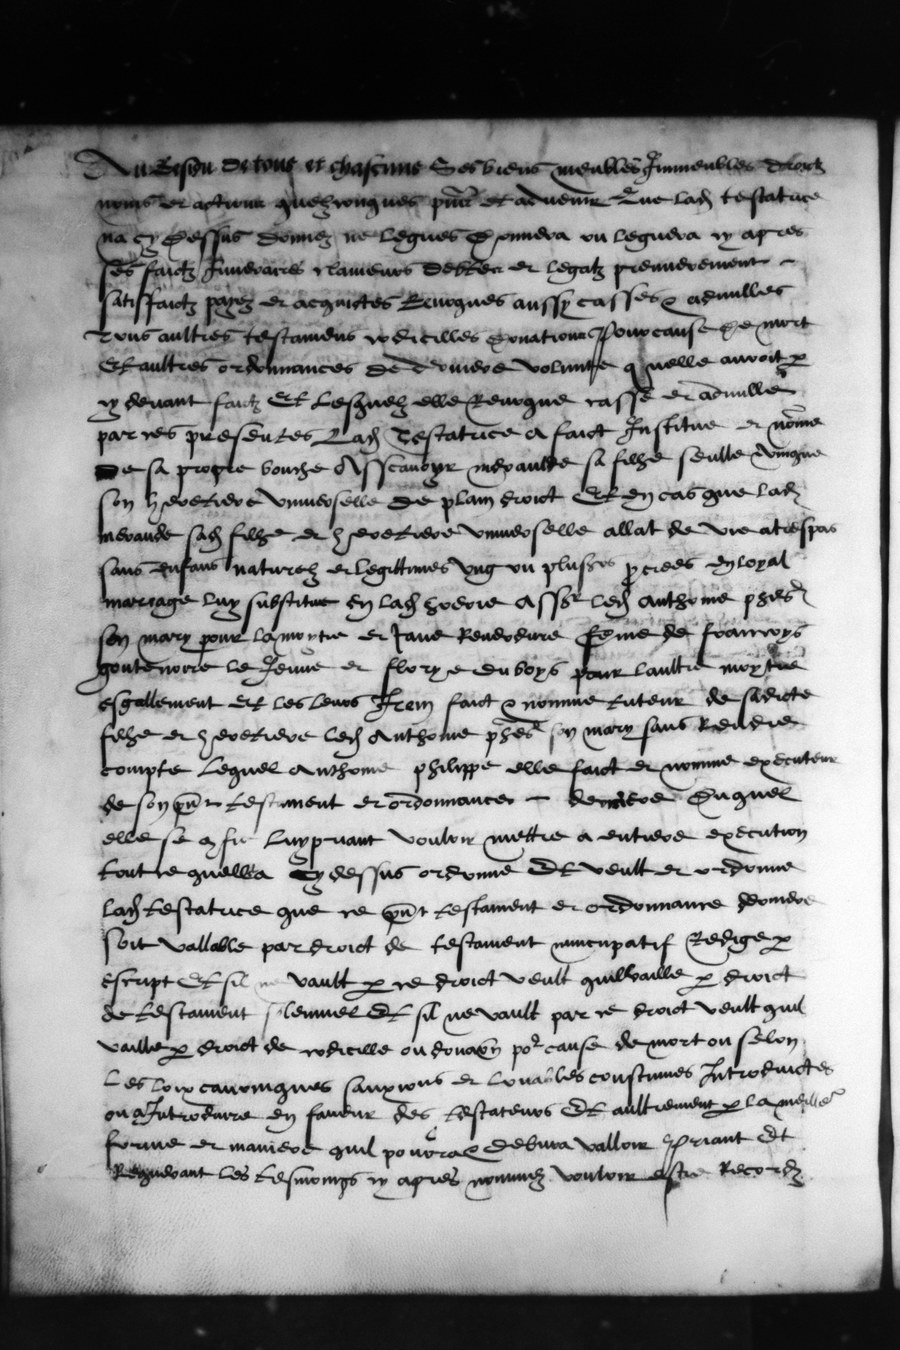 Au Residu de tous et chascuns Ses biens meubles Immeubles droictz
noms et actions quelzconques pntz et advenir Que lad testatrice
na cy dessus donnez ne legues donnera ou leguera cy apres
ses faictz funeraires clameurs debtes et legatz premierement
satisfaictz payez et acquictes Revoques aussy casses & adnulles
Tous aultres testamens codicilles donations Pour cause de mort
Et aultres ordonnances de derniere volunte quelle auroit p
cy devant faictz Et Lesquelz elle Revoque casse et adnulle
par ces presentes Lad Testatrice a faict Institue et nome
de sa propre bouche Asscavoyr sa filhe seulle & unicque
son heretiere universelle de plain droict Et en cas que lad
sad filhe et heretiere universelle allat de vie a trespas
sans enfans naturelz et legittimes Ung ou plusrs pcrees en loyal
mariage luy substitue en lad hoerie Assr led Anthoine
son mary pour la moytie et Jane femme de francoys
le Jeune et duboys pour laultre moytie
esgallement Et les leurs Item faict & nomme tuteur de sadicte
filhe et heretiere led Anthoine son mary sans Rendre
compte Lequel Anthoine philippe elle faict et nomme executeur
de son pnt testament et ordonnance derniere Duquel
elle se cfie Luy priant vouloir mettre a entiere execution
tout ce quella Cy dessus ordonne Et veult et ordonne
lad testatrice que ce pnt testament et ordonnance derniere
soit vallable par droict de testament nuncupatif Redige p
escript Et sil ne vault p ce droict veult quil vaille p droict
de testament solemnel Et sil ne vault par ce droict veult quil
vaille p droict de codicille ou donaon por cause de mort ou selon
Les loix canonicques sanxions et louables coustumes Introduictes
ou a Introduire en faveur des testateurs Et aultrement p la meilleur
forme et maniere quil pourra & debvra valloir Priant Et
Requerant les tesmoings cy apres nommez vouloir estre Recordz